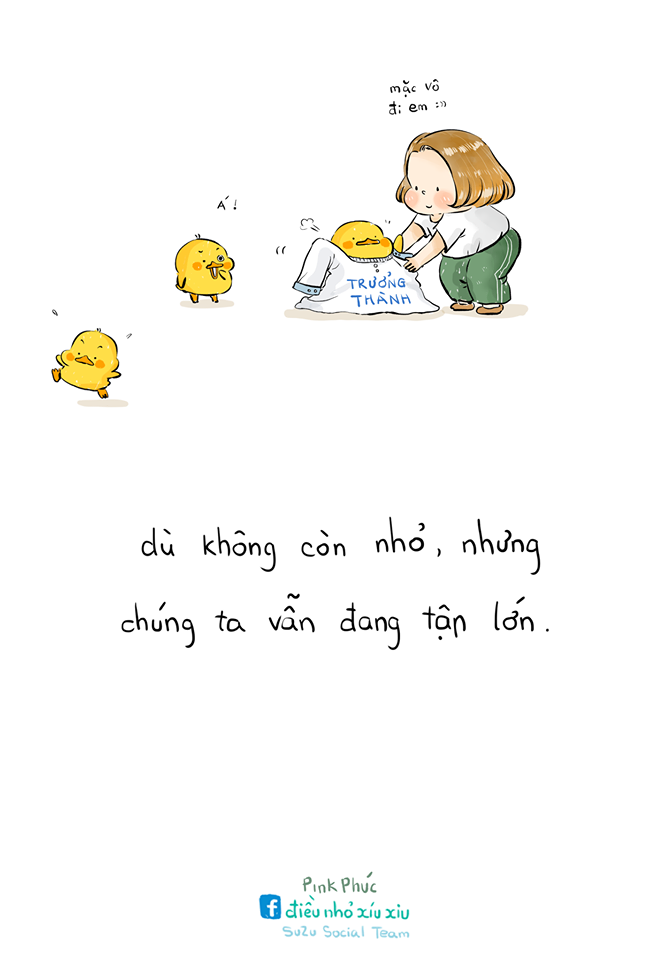 mặc vô
đi em :))
Á!
TRƯỞNG
THÀNH
dù không còn nhỏ, nhưng
chúng ta vẫn đang tập lớn.
Pink Phúc
f điều nhỏ xíu xiu
Suzu Social Team